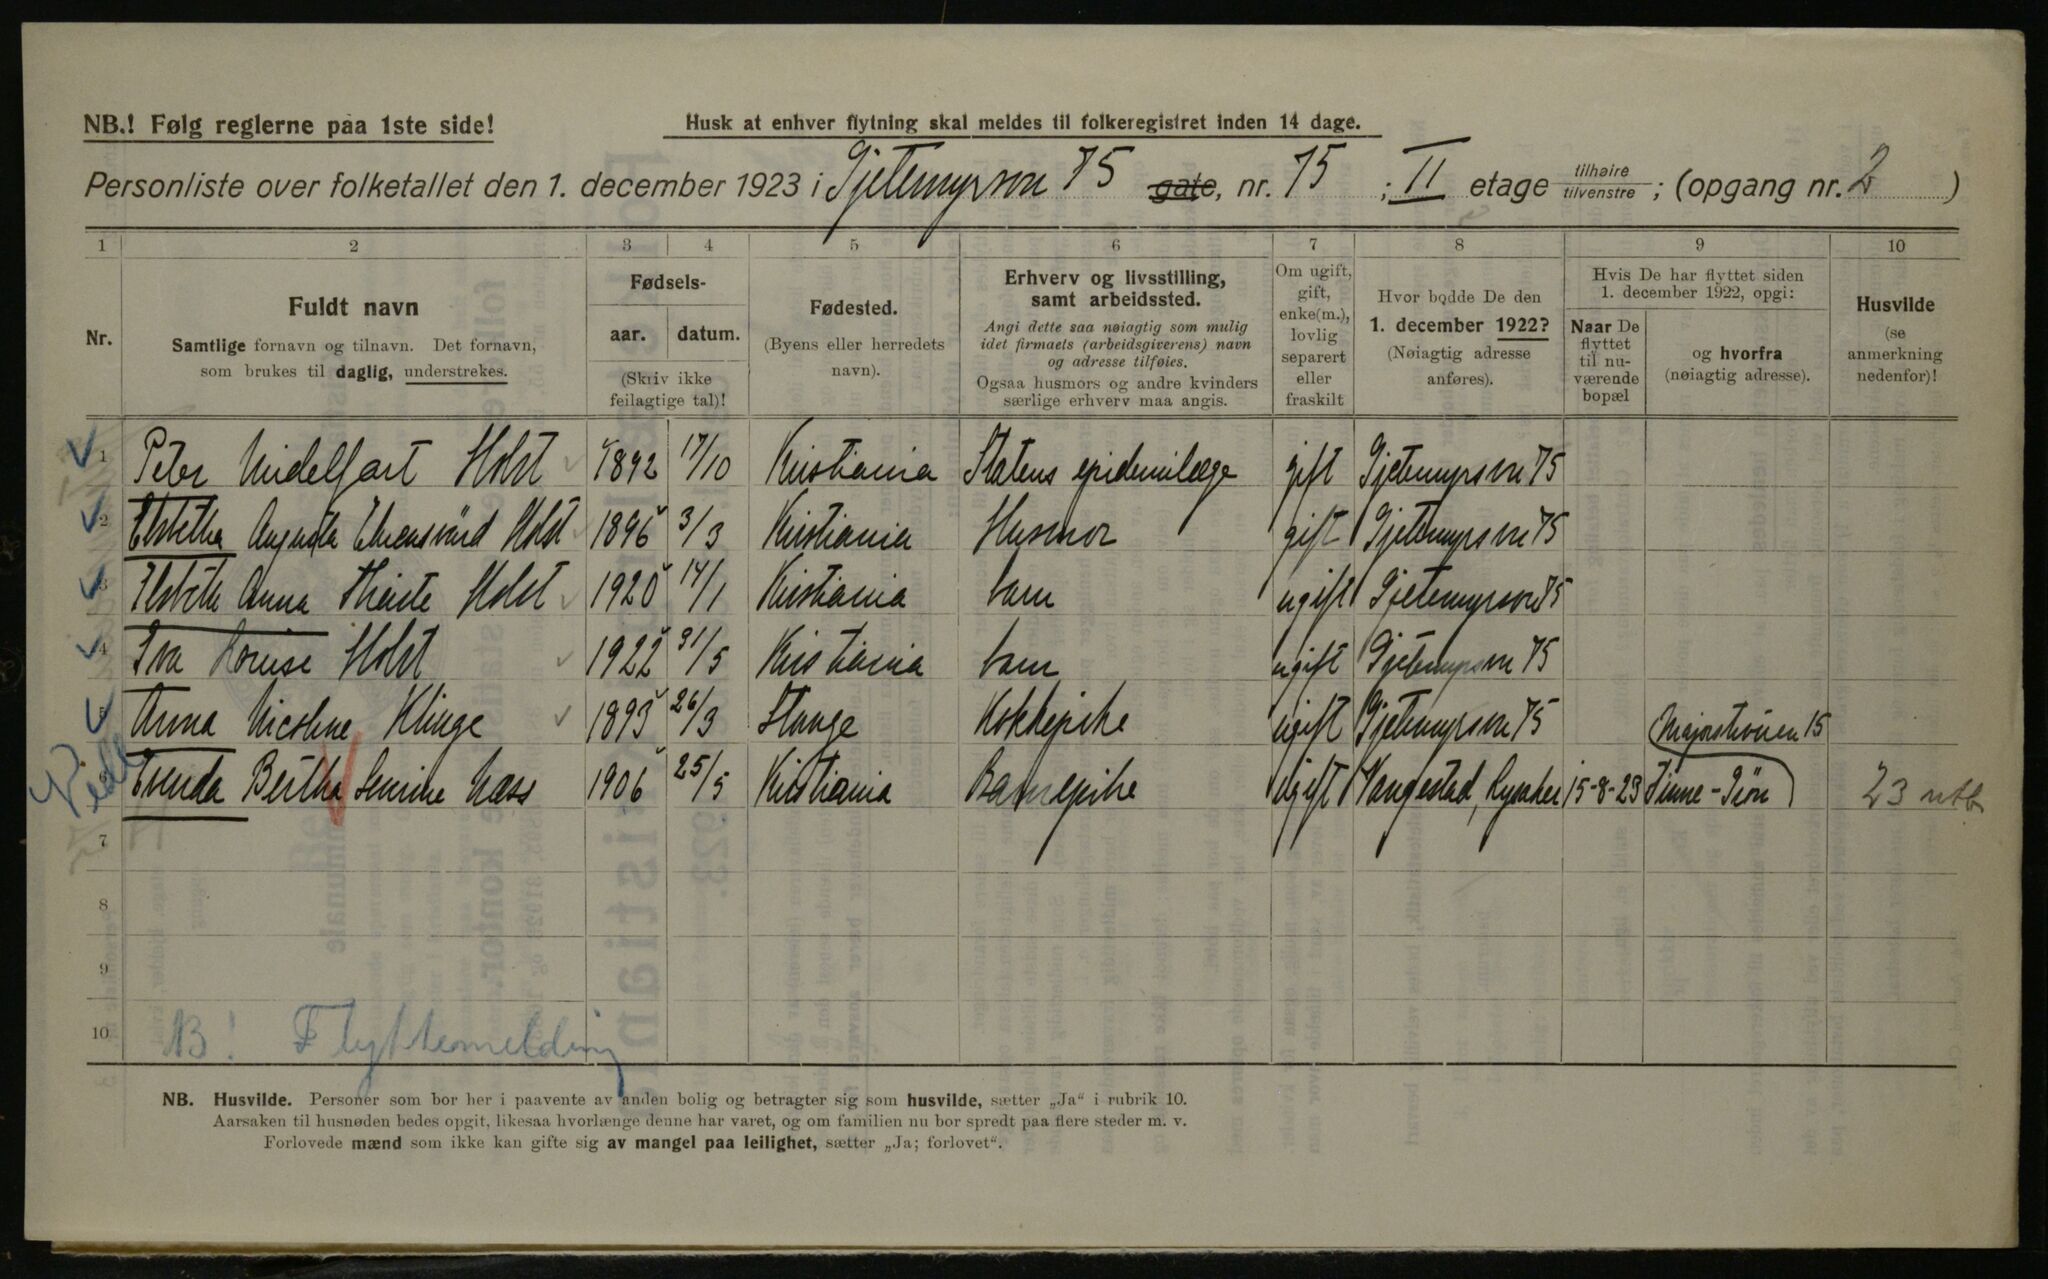 NB.! Følg reglerne paa 1ste side!
Husk at enhver flytning skal meldes til folkeregistret inden 14 dage.
Personliste over folketallet den 1. december 1923 i Gjetemyrsvn 75 gate, nr. 75 ; II etage tilhøire tilvenstre ; (opgang nr. 2 )
1 2 3 4 5 6 7 8 9 10
Nr.
Fuldt navn
Samtlige fornavn og tilnavn. Det fornavn,
som brukes til daglig, understrekes.
Fødsels-
aar. datum.
(Skriv ikke
feilagtige tal)!
Fødested.
(Byens eller herredets
navn).
Erhverv og livsstilling,
samt arbeidssted.
Angi dette saa nøiagtig som mulig
idet firmaets (arbeidsgiverens) navn
og adresse tilføies.
Ogsaa husmors og andre kvinders
særlige erhverv maa angis.
Om ugift,
gift,
enke(m.),
lovlig
separert
eller
fraskilt
Hvor bodde De den
1. december 1922?
(Nøiagtig adresse
anføres).
Hvis De har flyttet siden
1. december 1922, opgi:
Naar De
flyttet
til nu-
værende
bopæl
og hvorfra
(nøiagtig adresse).
Husvilde
(se
anmerkning
nedenfor)!
1 Peter Midelfart Holst 1892 17/10 Kristiania Statens epidemilæge gift Gjetemyrsvn 75
2 Elsbetha Augusta Ehrensvärd Holst 1896 3/3 Kristiania Husmor gift Gjetemyrsvn 75
3 Elsbeth Anna Holst 1920 14/1 Kristiania barn ugift Gjetemyrsvn 75
4 Eva Louise Holst 1922 31/5 Kristiania barn ugift Gjetemyrsvn 75
5 Anna Nicoline Klinge 1893 26/3 Stange Kokkepike ugift Gjetemyrsvn 75
Majorstuveien 15
6 Bertha Næss 1906 25/5 Kristiania Barnepike ugift Vangestad, Lysaker 15-8-23
23
7
8
9
10 NB! Flyttemelding
NB. Husvilde. Personer som bor her i paavente av anden bolig og betragter sig som husvilde, sætter „Ja“ i rubrik 10.
Aarsaken til husnøden bedes opgit, likesaa hvorlænge denne har varet, og om familien nu bor spredt paa flere steder m. v.
Forlovede mænd som ikke kan gifte sig av mangel paa leilighet, sætter „Ja; forlovet“.